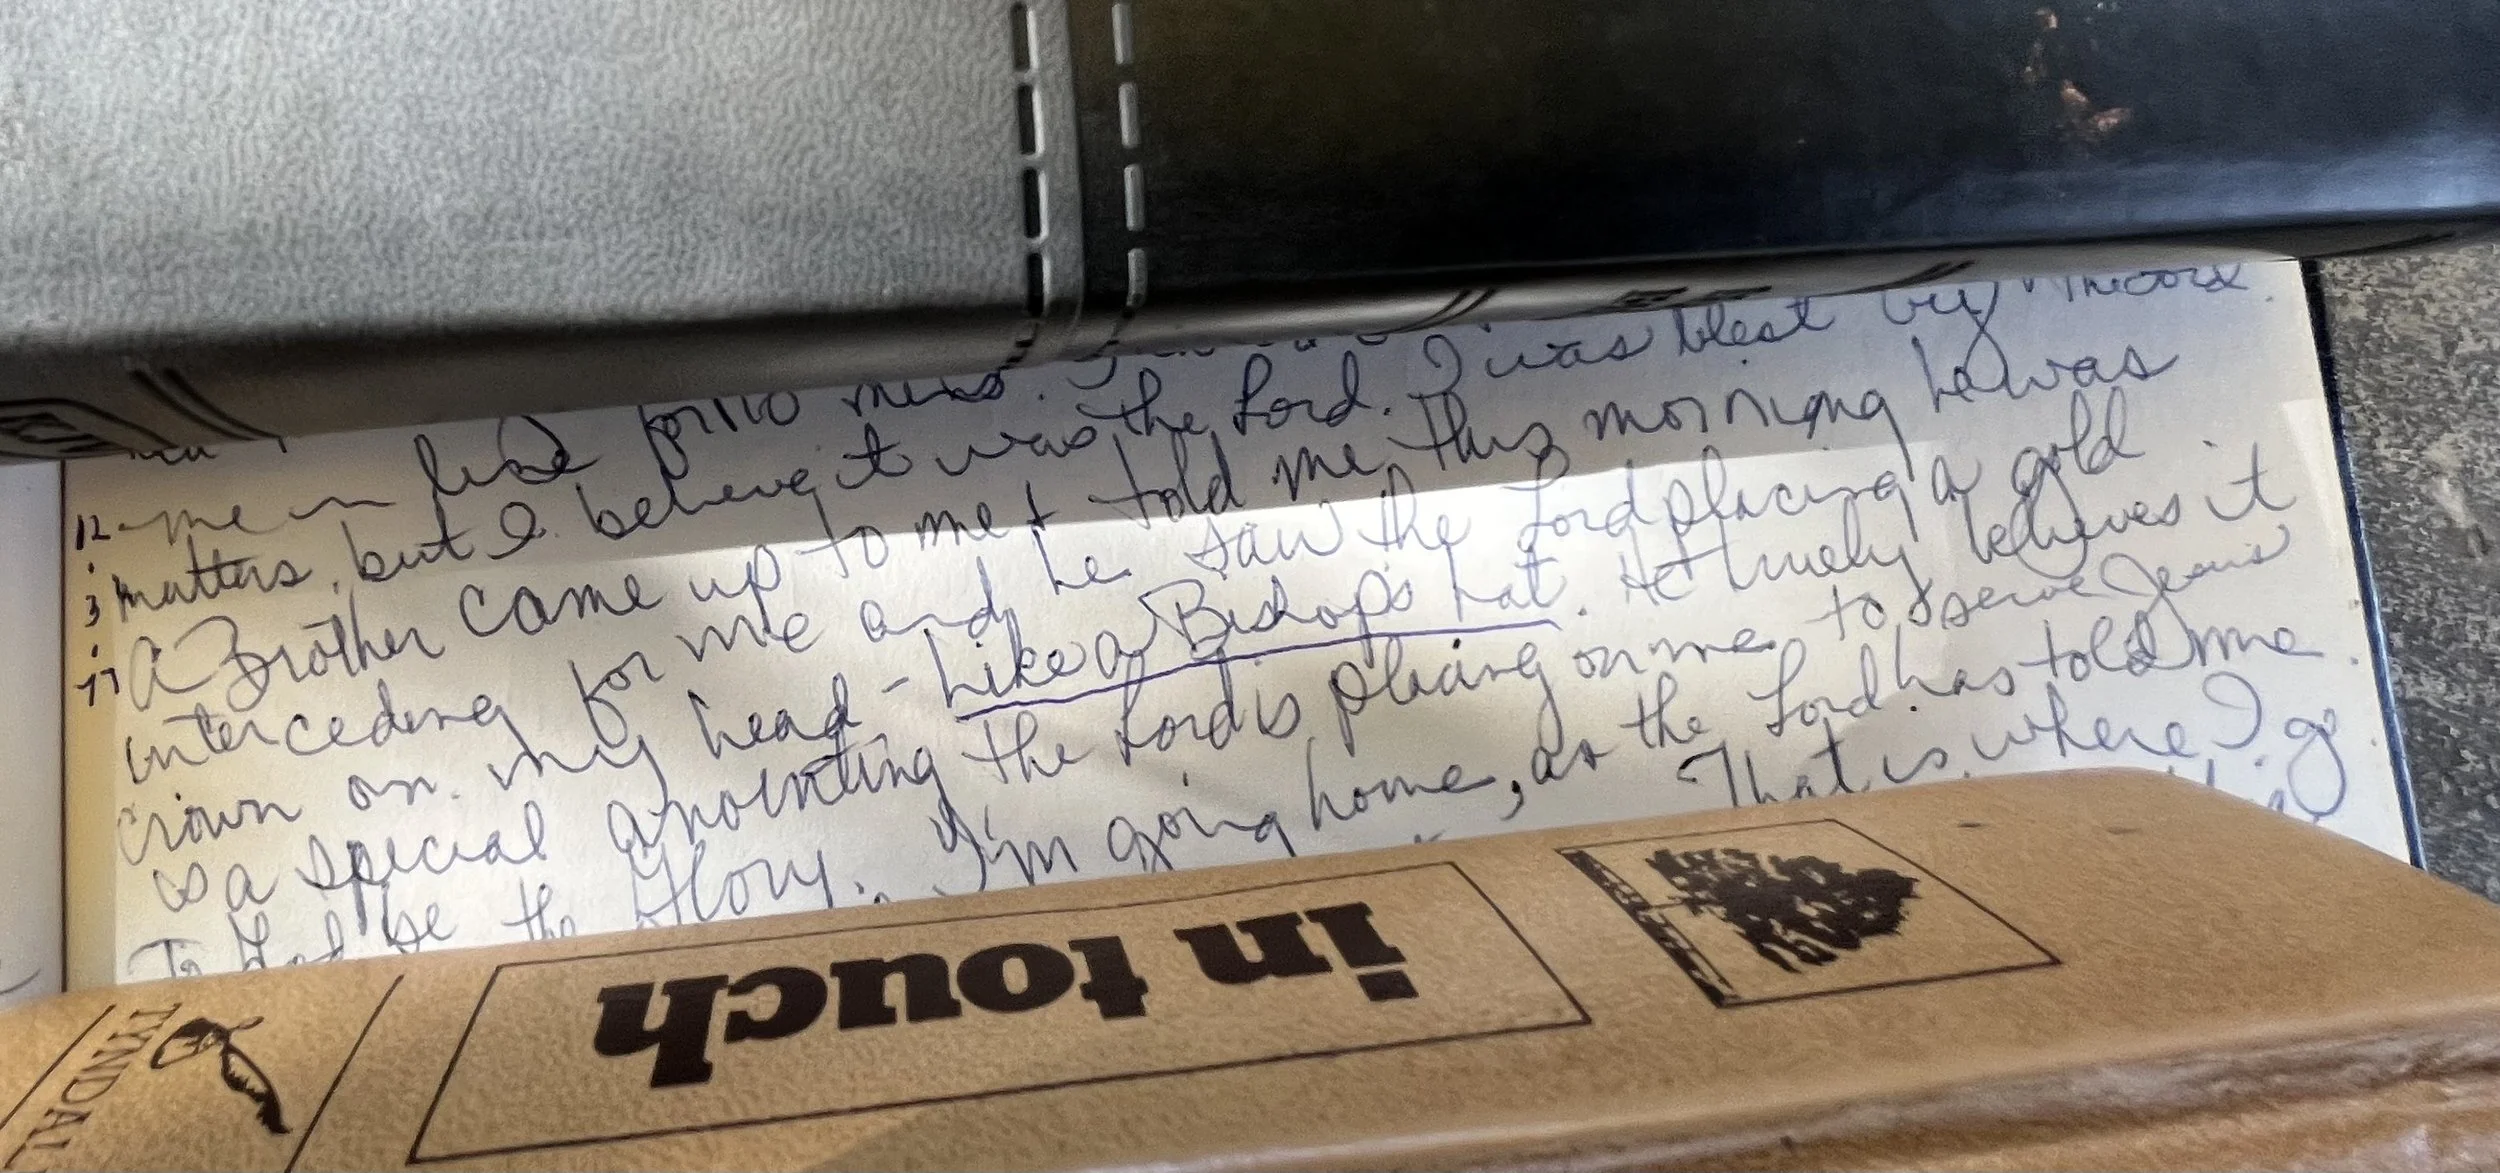 by the Lord.
me in line for 110 mens.
12 matters, but I believe it was the Lord. I was blest
3 A Brother came up to me & told me this morning he was
77 interceding for me and he saw the Lord placing a gold
crown on my head - Like a Bishop's hat. He truely believes it
is a special anointing the Lord is placing on me to serve Jesus
To God be the Glory. I'm going home, as the Lord has told me.
That is where I go
in touch
TYNDAL